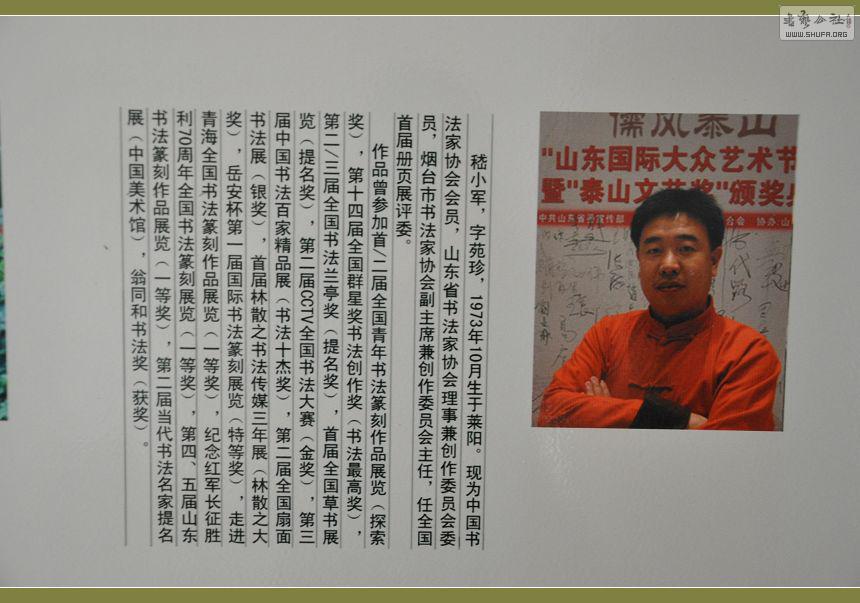 嵇小军，字苑珍，1973年10月生于莱阳。现为中国书
法家协会会员，山东省书法家协会理事兼创作委员会委
员，烟台市书法家协会副主席兼创作委员会主任，任全国
首届册页展评委。
作品曾参加首/二届全国青年书法篆刻作品展览（探索
奖），第十四届全国群星奖书法创作奖（书法最高奖），
第二/三届全国书法兰亭奖（提名奖），首届全国草书展
览（提名奖），第二届CCTV全国书法大赛（金奖），第三
届中国书法百家精品展（书法十杰奖），第二届全国扇面
书法展（银奖），首届林散之书法传媒三年展（林散之大
奖），岳安杯第一届国际书法篆刻展览（特等奖），走进
青海全国书法篆刻作品展览（一等奖），纪念红军长征胜
利70周年全国书法篆刻展览（一等奖），第四、五届山东
书法篆刻作品展览（一等奖），第二届当代书法名家提名
展（中国美术馆），翁同和书法奖（获奖）。
儒风泰山
"山东国际大众艺术节
暨"泰山文艺奖"颁奖
中共山东省委宣传部
合会 协办:山
書艺公社
WWW.SHUFA.ORG